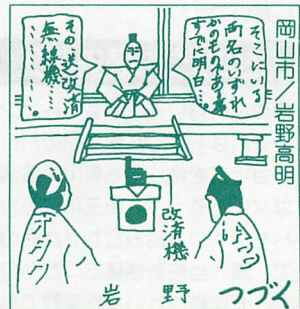 岡山市/岩野高明
そこにいる
両名のいずれ
かのものである事
すでに明白…。
その、送改済
無線機……
……。
改済機
岩野
つづく